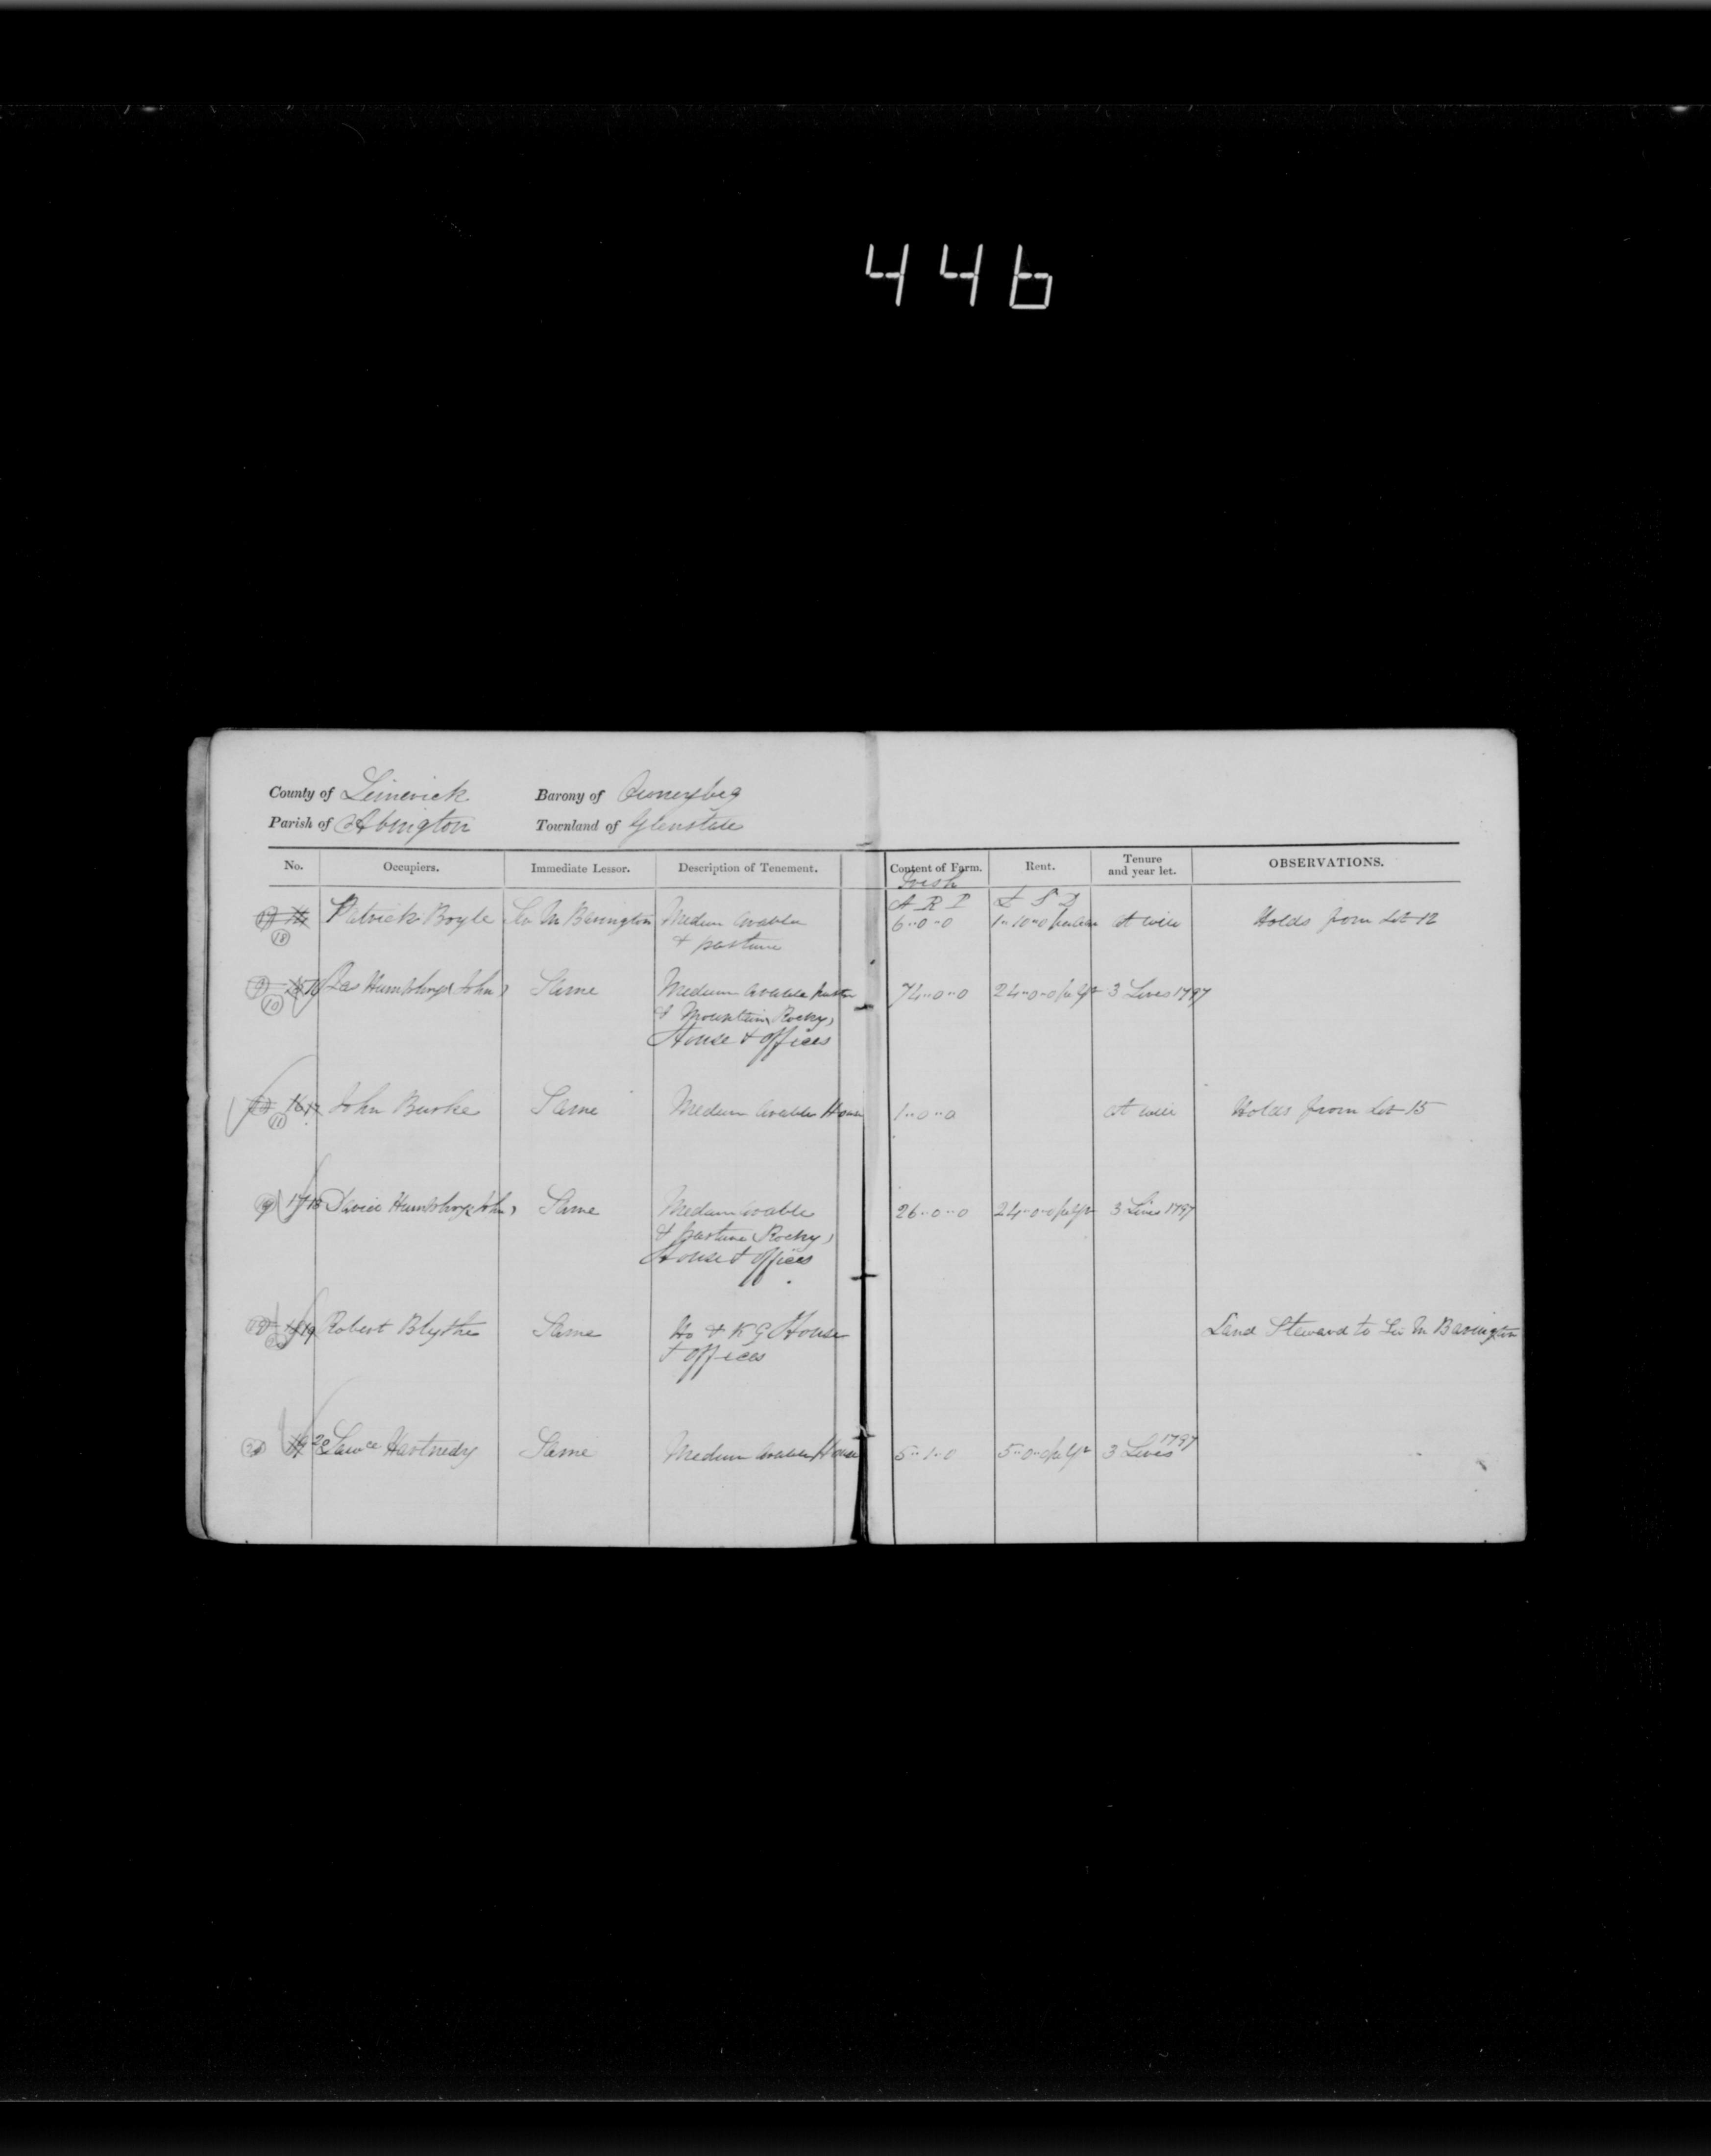 446
County of Limerick Barony of Owneybeg
Parish of Abington Townland of Glenstale
No. Occupiers. Immediate Lessor. Description of Tenement. Content of Farm. Rent. Tenure and year let. OBSERVATIONS.
Irish
A R P £ S D
18 Patrick Boyle Sir M Barrington Medium Arable 6..0..0 1..10..0 at will Holds from Lot 12
& pasture
10 16 Humphrys John Same Medium Arable pasture 74..0..0 24..0..0 per yr 3 Lives 1797
& Mountain Rocky,
House & offices
11 16 17 John Burke Same Medium Arable House 1..0..0 at will Holds from Lot 15
17 18 Humphrys John Same Medium arable 26..0..0 24..0..0 per yr 3 Lives 1797
& pasture Rocky,
House & offices
19 Robert Blythe Same Ho & K G House Land Steward to Sir M Barrington
& offices
19 20 Lawce Hartnedy Same Medium Arable House 5..1..0 5..0..0 per yr 3 Lives 1797